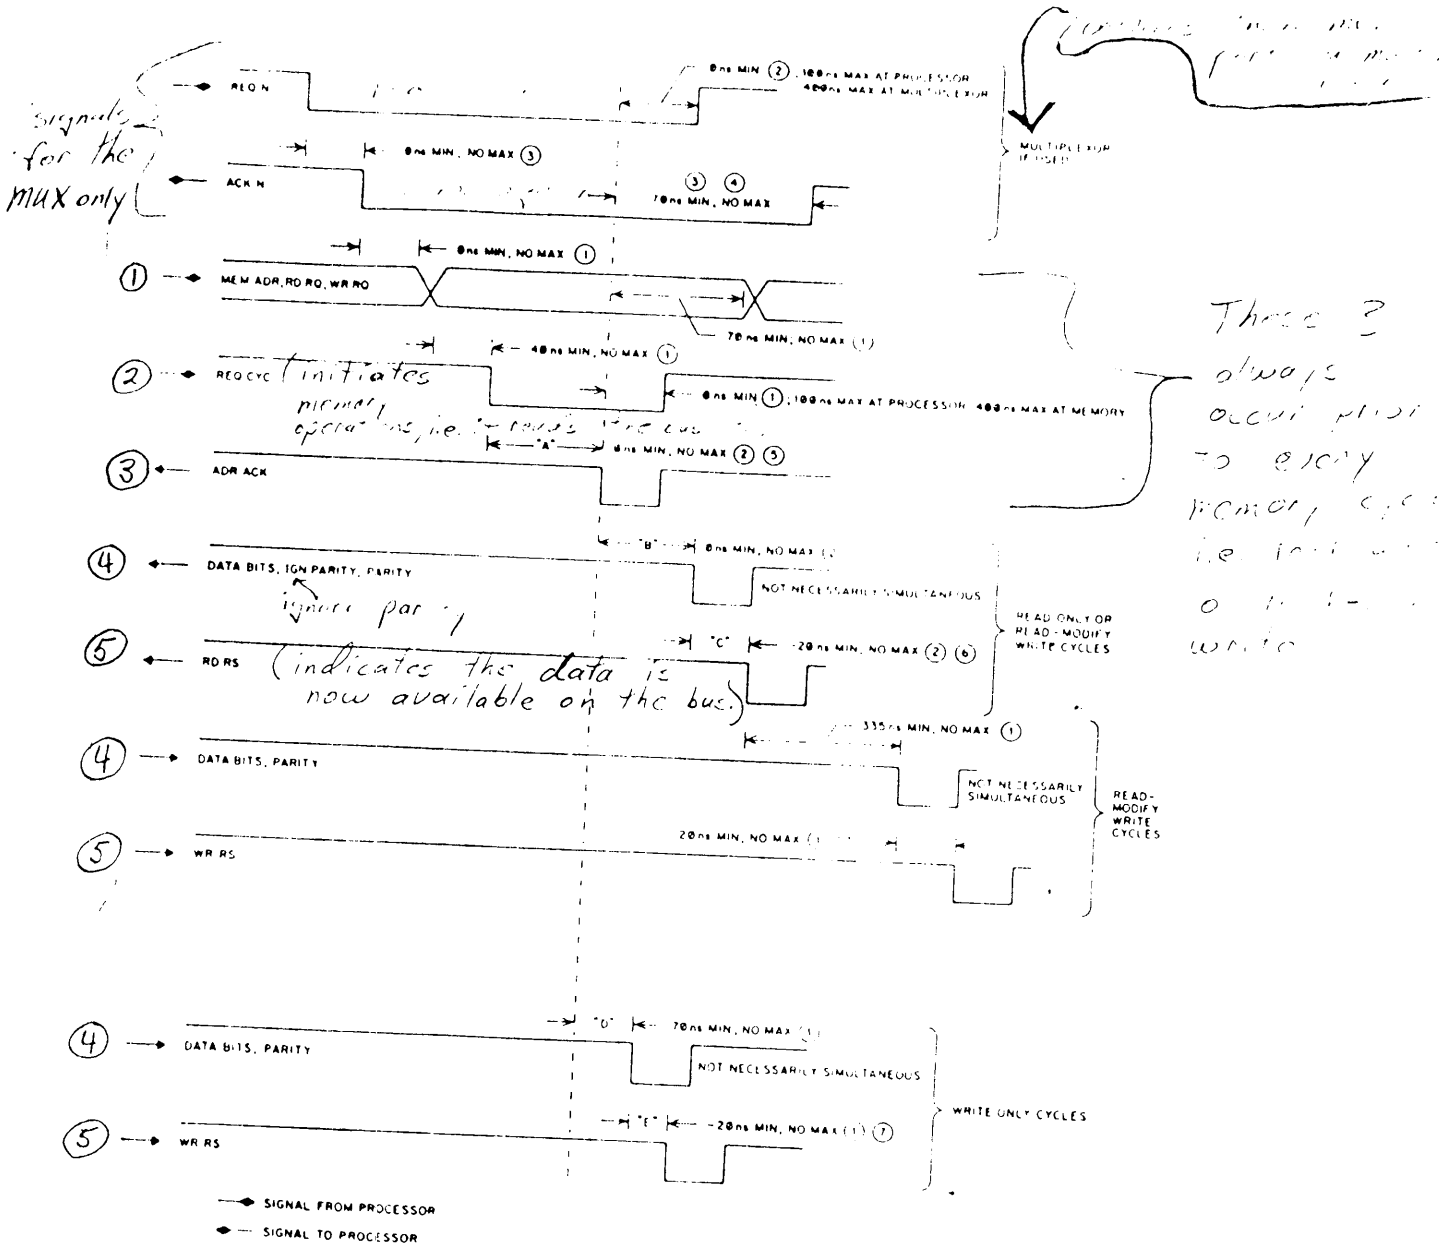 signals
for the
MUX only
REQ N
0ns MIN ②; 100ns MAX AT PROCESSOR
400ns MAX AT MULTIPLEXOR
MULTIPLEXOR
IF USED
0ns MIN, NO MAX ③
ACK N
③ ④
70ns MIN, NO MAX
0ns MIN, NO MAX ①
① MEM ADR, RD RQ, WR RQ
70ns MIN, NO MAX (1)
40ns MIN, NO MAX ①
② REQ CYC (initiates
memory
0ns MIN ①; 100ns MAX AT PROCESSOR 400ns MAX AT MEMORY
"A" 0ns MIN, NO MAX ② ⑤
③ ADR ACK
These 3
always
occur prior
to every
memory
i.e.
write
"B" 0ns MIN, NO MAX (2
④ DATA BITS, IGN PARITY, PARITY
NOT NECESSARILY SIMULTANEOUS
ignore
READ ONLY OR
READ-MODIFY
WRITE CYCLES
"C" -20ns MIN, NO MAX ② ⑥
⑤ RD RS (indicates the data is
now available on the bus.)
335ns MIN, NO MAX ①
④ DATA BITS, PARITY
NOT NECESSARILY
SIMULTANEOUS
READ-
MODIFY
WRITE
CYCLES
20ns MIN, NO MAX (1
⑤ WR RS
"D" 70ns MIN, NO MAX (1)
④ DATA BITS, PARITY
NOT NECESSARILY SIMULTANEOUS
WRITE ONLY CYCLES
"E" -20ns MIN, NO MAX (1) ⑦
⑤ WR RS
SIGNAL FROM PROCESSOR
SIGNAL TO PROCESSOR